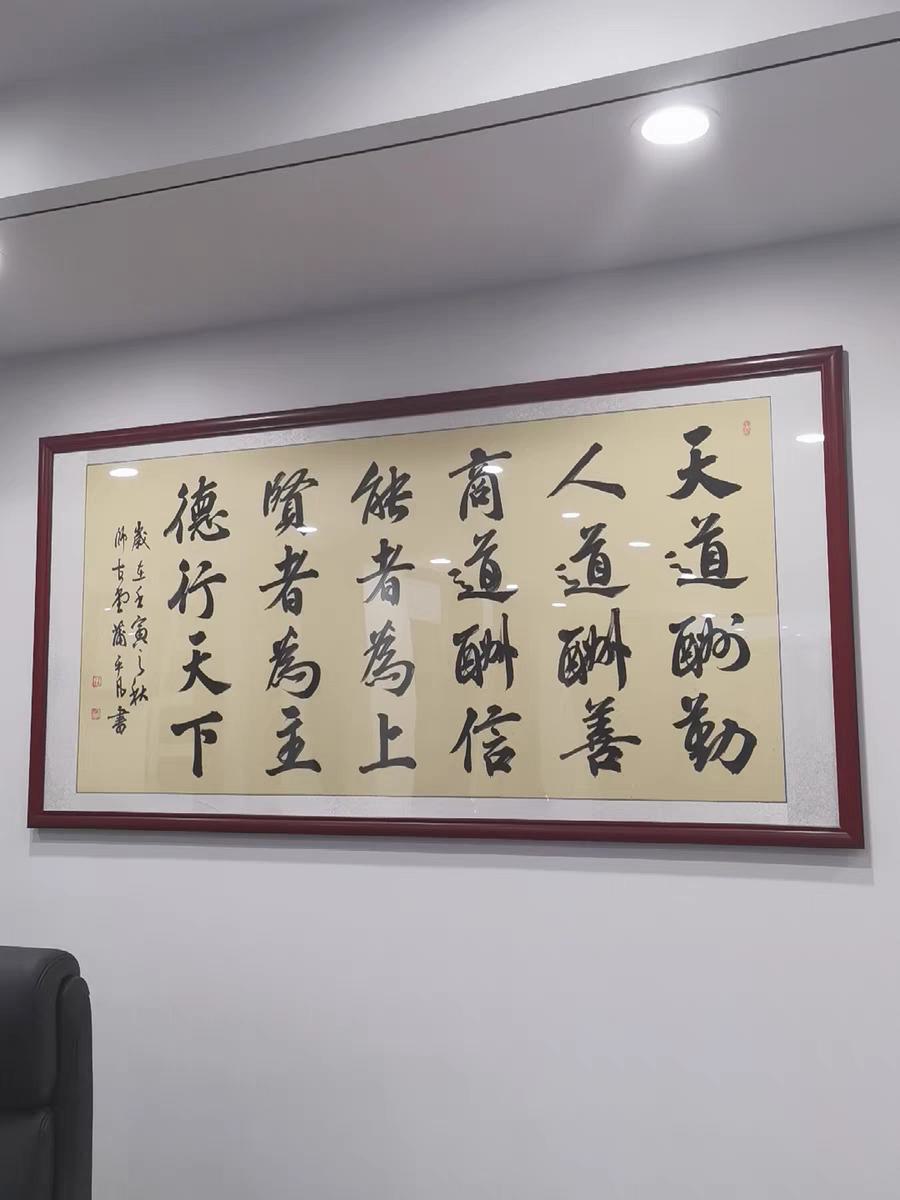 天道酬勤
人道酬善
商道酬信
能者為上
賢者為主
德行天下
歲在壬寅之秋
師古堂蒲平凡書